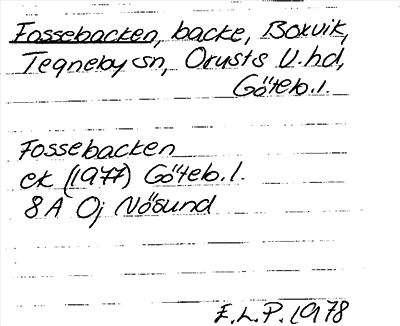 Fossebacken, backe, Boxvik,
Tegneby sn, Orusts V. hd,
Göteb. l.
Fossebacken
ek (1977) Göteb. l.
8A Oj Nösund
E. L. P. 1978